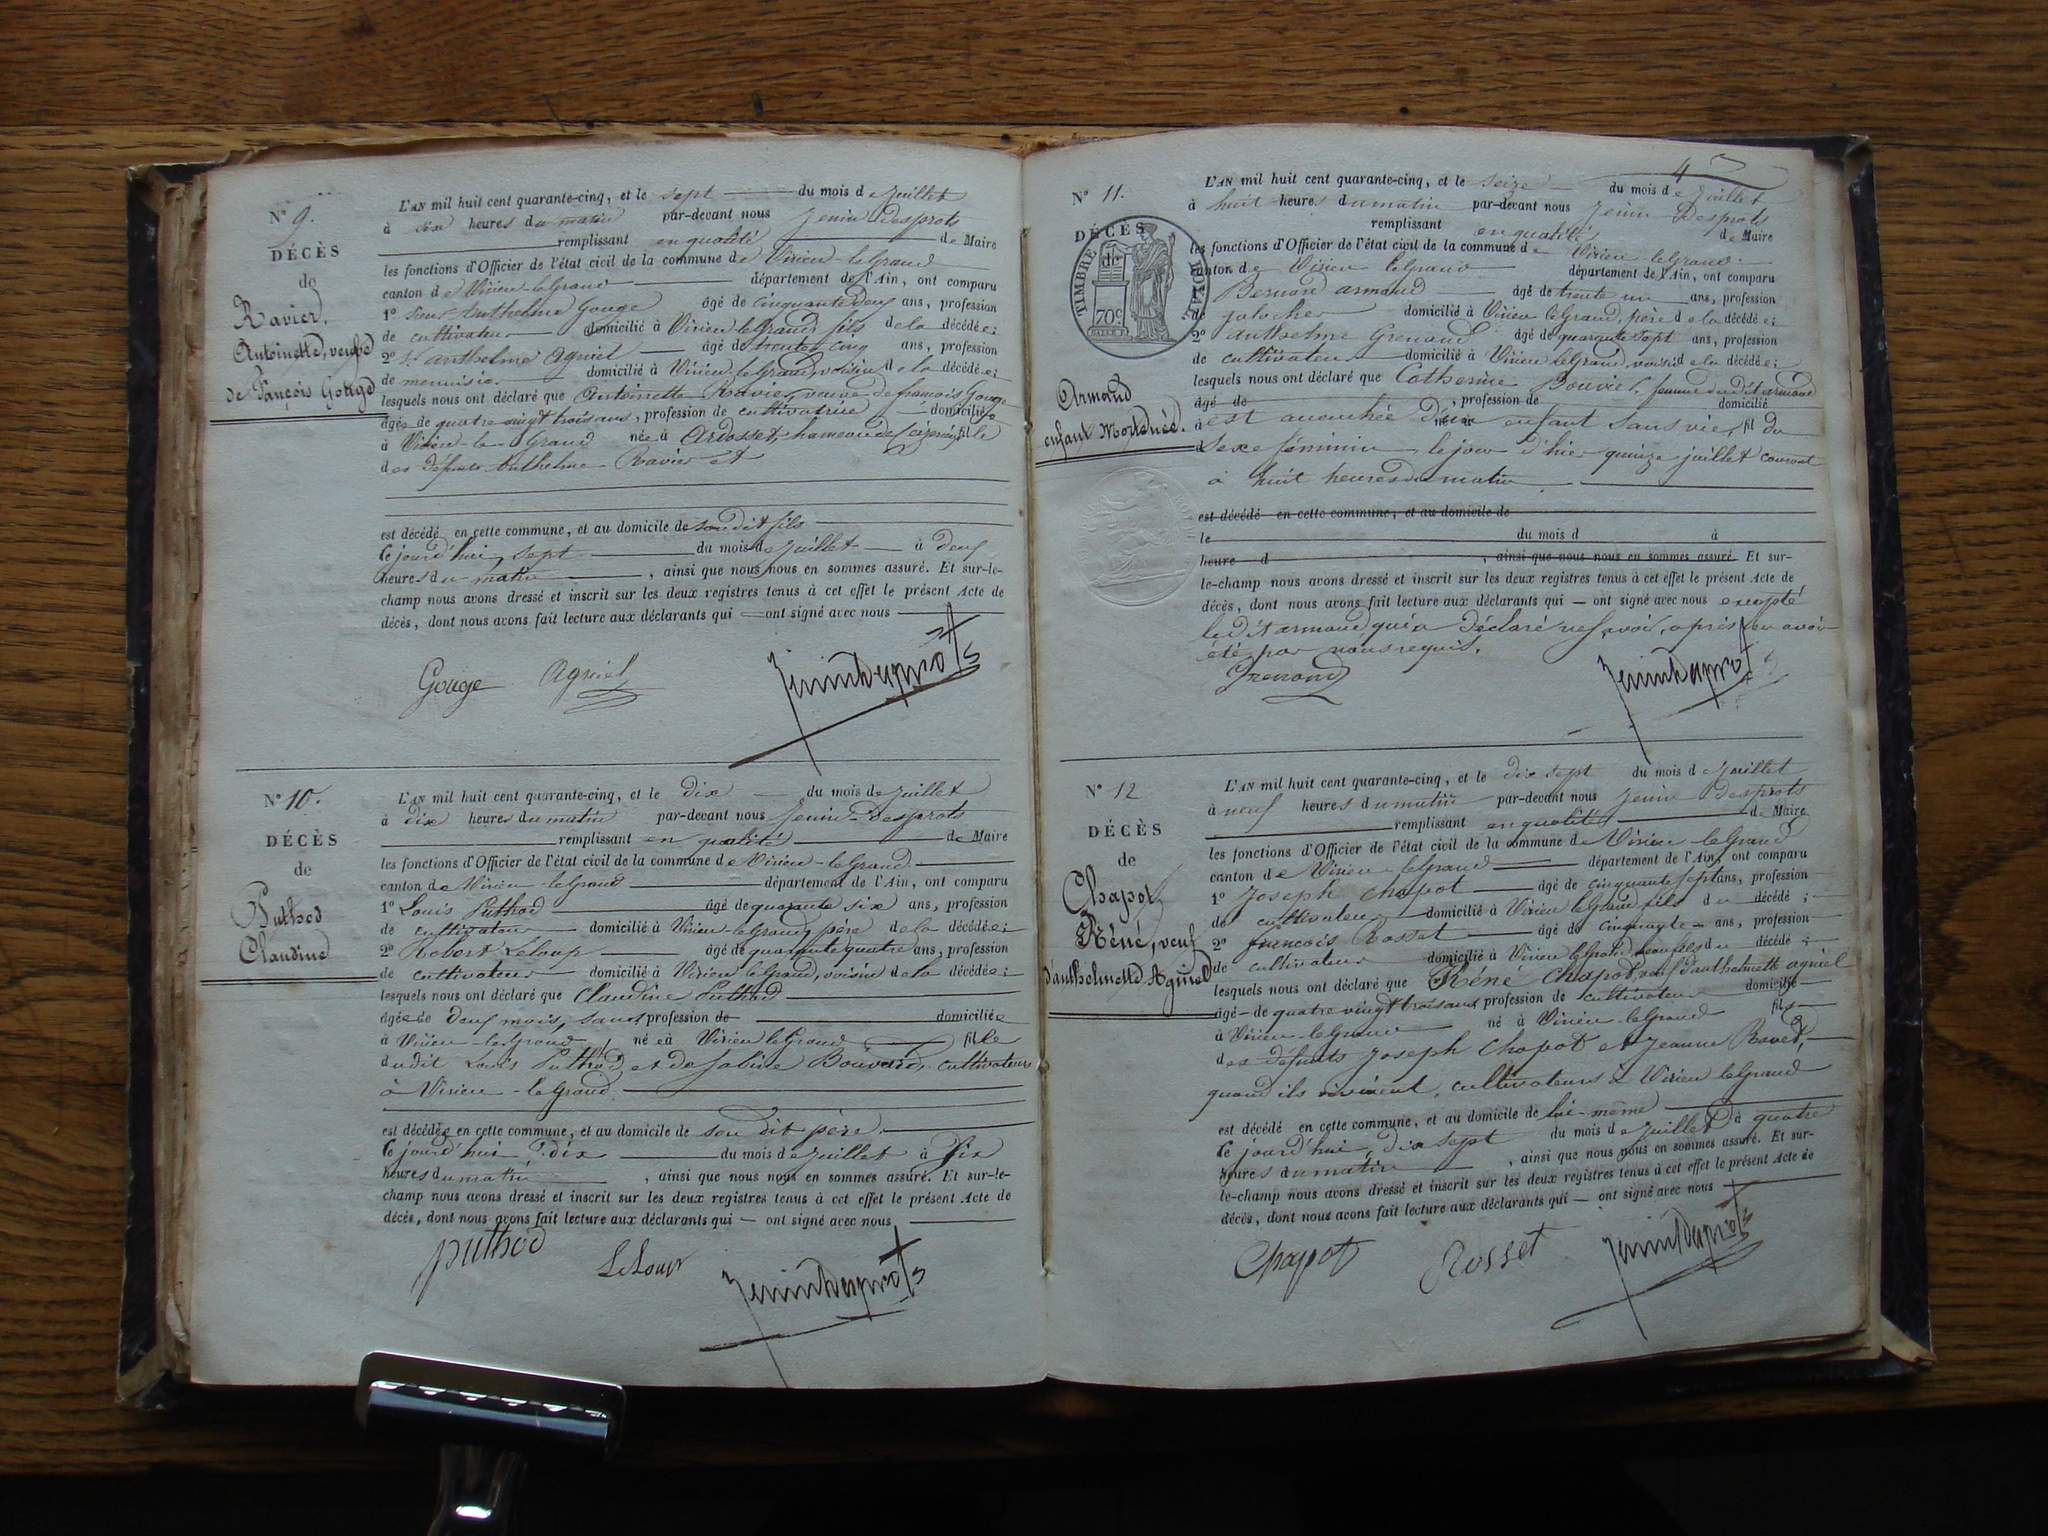 N° 9.
DÉCÈS
de
Ravier,
Antoinette, veuve
de François Gouge
L'AN mil huit cent quarante-cinq, et le sept du mois de juillet
à six heures du matin par-devant nous Jenin Desprots
remplissant en qualité de Maire
les fonctions d'Officier de l'état civil de la commune de Virieu-le-Grand
canton de Virieu-le-Grand département de l'Ain, ont comparu
1° Anthelme Gouge âgé de cinquante deux ans, profession
de cultivateur domicilié à Virieu le Grand, fils de la décédée;
2° Sr. anthelme Agniel âgé de trente cinq ans, profession
de menuisier domicilié à Virieu-le-Grand, voisin de la décédée;
lesquels nous ont déclaré que Antoinette Ravier, veuve de françois Gouge
âgée de quatre vingt trois ans, profession de cultivatrice domiciliée
à Virieu-le-Grand née à Ardosset, hameau de fille
des défunts Anthelme Ravier et
est décédé en cette commune, et au domicile de son dit fils
le jourd'hui, sept du mois de juillet à deux
heures du matin, ainsi que nous nous en sommes assuré. Et sur-le-
champ nous avons dressé et inscrit sur les deux registres tenus à cet effet le présent Acte de
décès, dont nous avons fait lecture aux déclarants qui ont signé avec nous
Gouge Agniel Jenin Desprots
N° 10.
DÉCÈS
de
Puthod
Claudine
L'AN mil huit cent quarante-cinq, et le dix du mois de juillet
à dix heures du matin par-devant nous Jenin-Desprots
remplissant en qualité de Maire
les fonctions d'Officier de l'état civil de la commune de Virieu-le-Grand
canton de Virieu-le-Grand département de l'Ain, ont comparu
1° Louis Puthod âgé de quarante six ans, profession
de cultivateur domicilié à Virieu-le-Grand, père de la décédée;
2° Robert Leloup âgé de quarante quatre ans, profession
de cultivateur domicilié à Virieu le Grand, voisin de la décédée;
lesquels nous ont déclaré que Claudine Puthod
âgée de deux mois, sans profession de domiciliée
à Virieu-le-Grand née à Virieu le Grand fille
dudit Louis Puthod, et de Sabine Bouvard, cultivateurs
à Virieu-le-Grand
est décédée en cette commune, et au domicile de son dit père
le jourd'hui dix du mois de juillet à six
heures du matin, ainsi que nous nous en sommes assuré. Et sur-le-
champ nous avons dressé et inscrit sur les deux registres tenus à cet effet le présent Acte de
décès, dont nous avons fait lecture aux déclarants qui — ont signé avec nous
puthod LeLoup Jenin Desprots
4
N° 11.
DÉCÈS
de
TIMBRE ROYAL
70c
Armand
enfant Mort né.
L'AN mil huit cent quarante-cinq, et le seize du mois de juillet
à huit heures du matin par-devant nous Jenin Desprots
remplissant en qualité de Maire
les fonctions d'Officier de l'état civil de la commune de Virieu-le-Grand
canton de Virieu le Grand département de l'Ain, ont comparu
Bernard armand âgé de trente un ans, profession
de galocher domicilié à Virieu le Grand, père de la décédée;
2° anthelme Grenand âgé de quarante sept ans, profession
de cultivateur domicilié à Virieu le Grand, voisin de la décédée;
lesquels nous ont déclaré que Catherine Bouvier, femme du dit armand
âgé de, profession de domicilié
à est accouchée d'un né à enfant sans vie, fil du
sexe féminin le jour d'hier quinze juillet courant
à huit heures du matin
est décédé en cette commune, et au domicile de
le du mois d à
heure d, ainsi que nous nous en sommes assuré. Et sur-
le-champ nous avons dressé et inscrit sur les deux registres tenus à cet effet le présent Acte de
décès, dont nous avons fait lecture aux déclarants qui — ont signé avec nous excepté
le dit armand qui a déclaré ne savoir, après en avoir
été par nous requis.
Grenand Jenin Desprots
N° 12
DÉCÈS
de
Chapot
Réné, veuf
d'anthelmette Agniel
L'AN mil huit cent quarante-cinq, et le dix sept du mois de juillet
à neuf heures du matin par-devant nous Jenin Desprots
remplissant en qualité de Maire
les fonctions d'Officier de l'état civil de la commune de Virieu-le-Grand
canton de Virieu-le-Grand département de l'Ain, ont comparu
1° Joseph Chapot âgé de cinquante sept ans, profession
de cultivateur domicilié à Virieu le Grand fils du décédé;
2° françois Rosset âgé de cinquante ans, profession
de cultivateur domicilié à Virieu le Grand, du décédé;
lesquels nous ont déclaré que Réné Chapot, veuf d'anthelmette agniel
âgé de quatre vingt trois ans, profession de cultivateur domicilié
à Virieu-le-Grand né à Virieu-le-Grand fils
des défunts Joseph Chapot et Jeanne Ravet,
quand ils vivaient, cultivateurs à Virieu le Grand
est décédé en cette commune, et au domicile de lui-même
le jourd'hui, dix sept du mois de juillet à quatre
heures du matin, ainsi que nous nous en sommes assuré. Et sur-
le-champ nous avons dressé et inscrit sur les deux registres tenus à cet effet le présent Acte de
décès, dont nous avons fait lecture aux déclarants qui — ont signé avec nous
Chapot Rosset Jenin Desprots